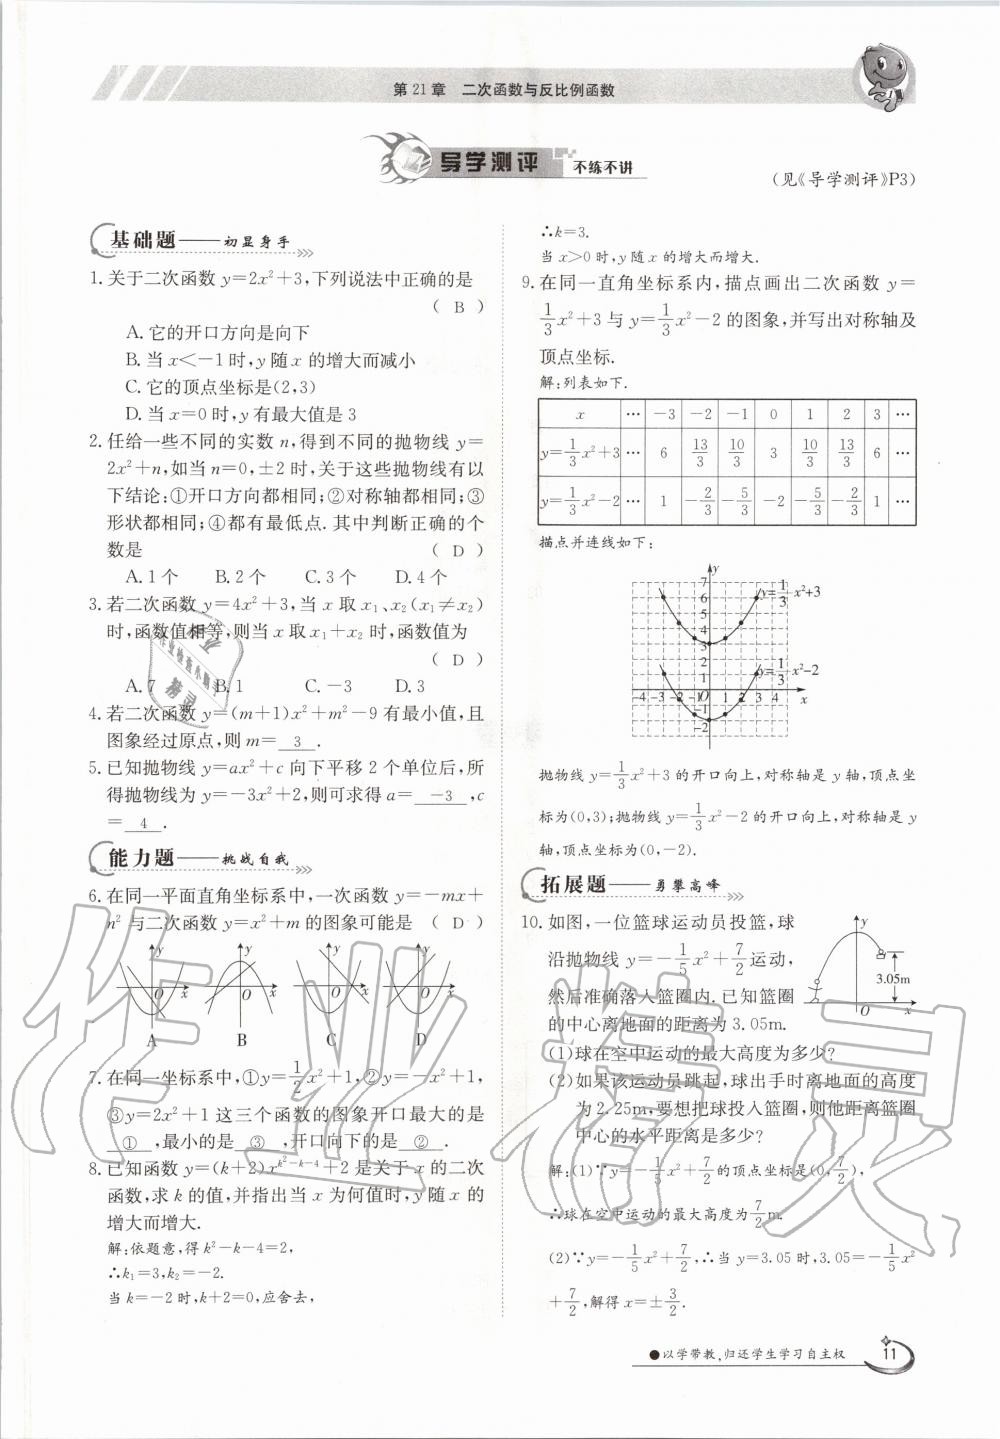 第21章 二次函数与反比例函数
导学测评 不练不讲
(见《导学测评》P3)
基础题——初显身手
1. 关于二次函数 y=2x²+3,下列说法中正确的是
( B )
A. 它的开口方向是向下
B. 当 x<-1 时,y 随 x 的增大而减小
C. 它的顶点坐标是(2,3)
D. 当 x=0 时,y 有最大值是 3
2. 任给一些不同的实数 n,得到不同的抛物线 y=
2x²+n,如当 n=0,±2 时,关于这些抛物线有以
下结论:①开口方向都相同;②对称轴都相同;③
形状都相同;④都有最低点. 其中判断正确的个
数是 ( D )
A. 1 个 B. 2 个 C. 3 个 D. 4 个
3. 若二次函数 y=4x²+3,当 x 取 x₁、x₂(x₁≠x₂)
时,函数值相等,则当 x 取 x₁+x₂ 时,函数值为
( D )
A. 7 B. 1 C. -3 D. 3
4. 若二次函数 y=(m+1)x²+m²-9 有最小值,且
图象经过原点,则 m= 3 .
5. 已知抛物线 y=ax²+c 向下平移 2 个单位后,所
得抛物线为 y=-3x²+2,则可求得 a= -3 ,c
= 4 .
能力题——挑战自我
6. 在同一平面直角坐标系中,一次函数 y=-mx+
n² 与二次函数 y=x²+m 的图象可能是 ( D )
y y y y
O x O x O x O x
A B C D
7. 在同一坐标系中,①y=1/2x²+1,②y=-x²+1,
③y=2x²+1 这三个函数的图象开口最大的是
① ,最小的是 ③ ,开口向下的是 ② .
8. 已知函数 y=(k+2)x^(k²-k-4)+2 是关于 x 的二次
函数,求 k 的值,并指出当 x 为何值时,y 随 x 的
增大而增大.
解:依题意,得 k²-k-4=2,
∴k₁=3,k₂=-2.
当 k=-2 时,k+2=0,应舍去,
∴k=3.
当 x>0 时,y 随 x 的增大而增大.
9. 在同一直角坐标系内,描点画出二次函数 y=
1/3x²+3 与 y=1/3x²-2 的图象,并写出对称轴及
顶点坐标.
解:列表如下.
x … -3 -2 -1 0 1 2 3 …
y=1/3x²+3 … 6 13/3 10/3 3 10/3 13/3 6 …
y=1/3x²-2 … 1 -2/3 -5/3 -2 -5/3 -2/3 1 …
描点并连线如下:
y
7
6
5
4
3
2
1
y=1/3x²+3
y=1/3x²-2
-4 -3 -2 -1 O 1 2 3 4 x
-1
-2
抛物线 y=1/3x²+3 的开口向上,对称轴是 y 轴,顶点坐
标为(0,3);抛物线 y=1/3x²-2 的开口向上,对称轴是 y
轴,顶点坐标为(0,-2).
拓展题——勇攀高峰
10. 如图,一位篮球运动员投篮,球
沿抛物线 y=-1/5x²+7/2 运动,
然后准确落入篮圈内. 已知篮圈
的中心离地面的距离为 3.05m.
y
3.05m
O x
(1)球在空中运动的最大高度为多少?
(2)如果该运动员跳起,球出手时离地面的高度
为 2.25m,要想把球投入篮圈,则他距离篮圈
中心的水平距离是多少?
解:(1)∵y=-1/5x²+7/2 的顶点坐标是(0,7/2),
∴球在空中运动的最大高度为 7/2m.
(2)∵y=-1/5x²+7/2,∴当 y=3.05 时,3.05=-1/5x²
+7/2,解得 x=±3/2.
●以学带教,归还学生学习自主权
11
作业精灵